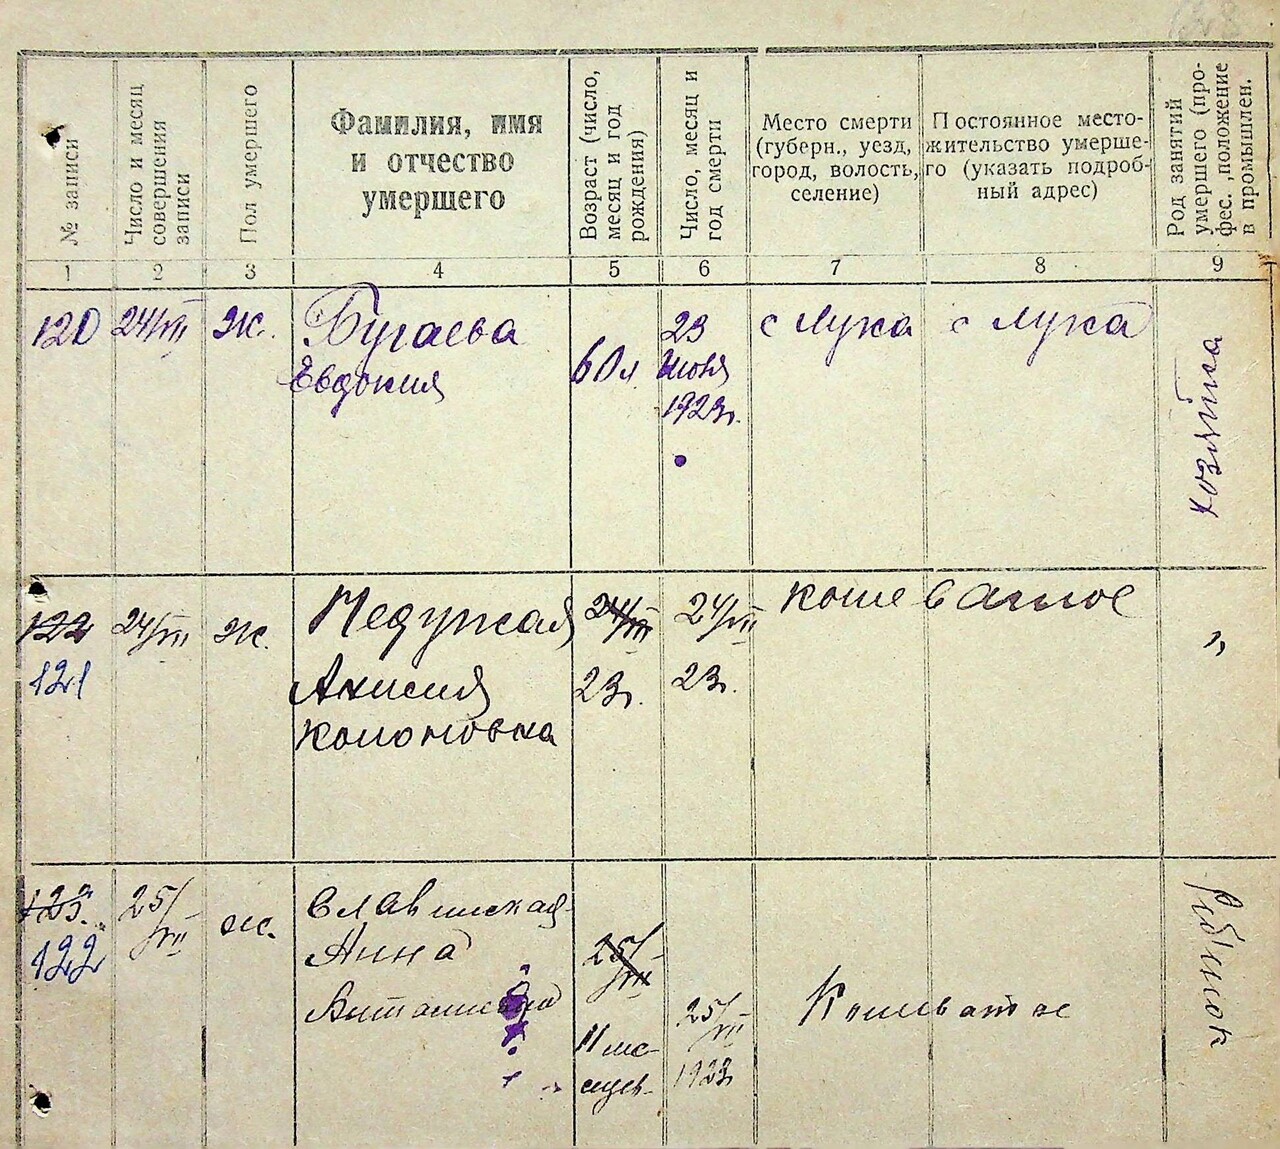 № записи
Число и месяц
совершения
записи
Пол умершего
Фамилия, имя
и отчество
умершего
Возраст (число,
месяц и год
рождения)
Число, месяц и
год смерти
Место смерти
(губерн., уезд,
город, волость,
селение)
Постоянное место-
жительство умерше-
го (указать подроб-
ный адрес)
Род занятий
умершего (про-
фес., положение
в промышлен.
1 2 3 4 5 6 7 8 9
120
24/VII
Ж.
Бугаева
Евдокия
60 л
23
Июня
1923г.
с Лука
с Лука
хозяйка
122
121
24/VII
Ж.
Недужая
Анисия
Кононовна
24/VII
23г.
24/VII
23г.
Кошеватое
"
123.
122
25/VII
Ж.
Славинская
Анна
25/VII
11 ме-
сяцев.
25/VII
1923г
Кошеватое